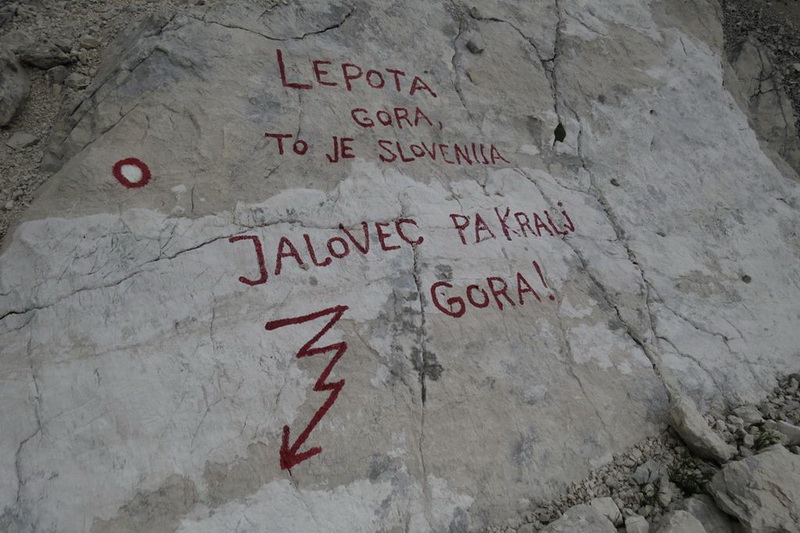 LEPOTA
GORA,
TO JE SLOVENIJA
JALOVEC PA KRALJ
GORA!